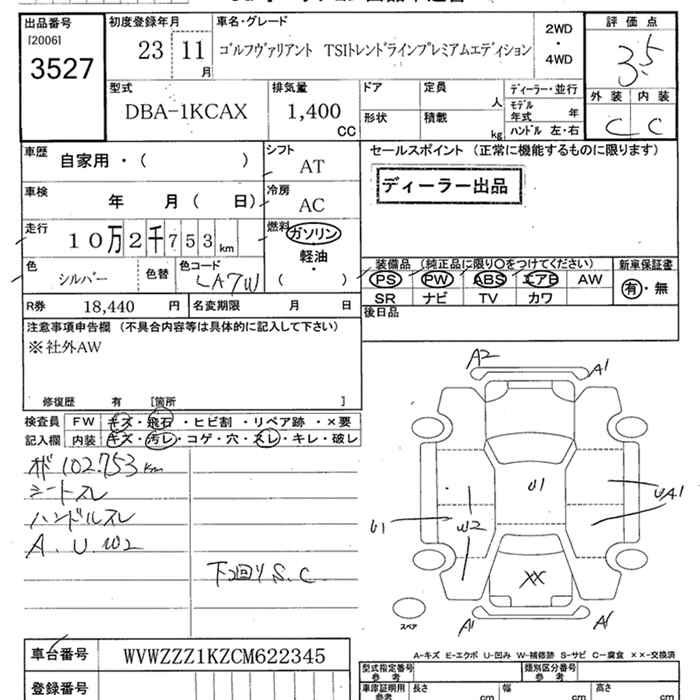 出品番号
[2006]
3527
初度登録年月
23 11
月
車名・グレード
ゴルフヴァリアント TSIトレンドラインプレミアムエディション
2WD
・
4WD
評価点
3.5
外装 内装
C C
型式
DBA-1KCAX
排気量
1,400
CC
ドア 定員
人
形状 積載
kg
ディーラー・並行
モデル年式 年
ハンドル 左・右
車歴 自家用・( )
シフト
AT
セールスポイント (正常に機能するものに限ります)
ディーラー出品
車検 年 月( 日)
冷房
AC
走行 10万2千753km
燃料
ガソリン
軽油
・
( )
色 シルバー 色替 色コード LA7W
装備品 (純正品に限り○をつけてください) 新車保証書
PS PW ABS エアB AW 有・無
SR ナビ TV カワ
R券 18,440 円 名変期限 月 日
後日品
注意事項申告欄 (不具合内容等は具体的に記入して下さい)
※社外AW
修復歴 有 [箇所 ]
検査員 FW キズ・飛石・ヒビ割・リペア跡・×要
記入欄 内装 キズ・汚レ・コゲ・穴・スレ・キレ・破レ
102.753km
シートスレ
ハンドルスレ
A.U.W2
下回りS.C
A2 A1
U1
UA1
U1 W2
XX
A1 A1
スペア
A-キズ E-エクボ U-凹み W-補修跡 S-サビ C-腐食 ××-交換済
車台番号 WVWZZZ1KZCM622345
登録番号
型式指定番号
参考
類別区分番号
参考
車庫証明用
参考
長さ cm 幅 cm 高さ cm